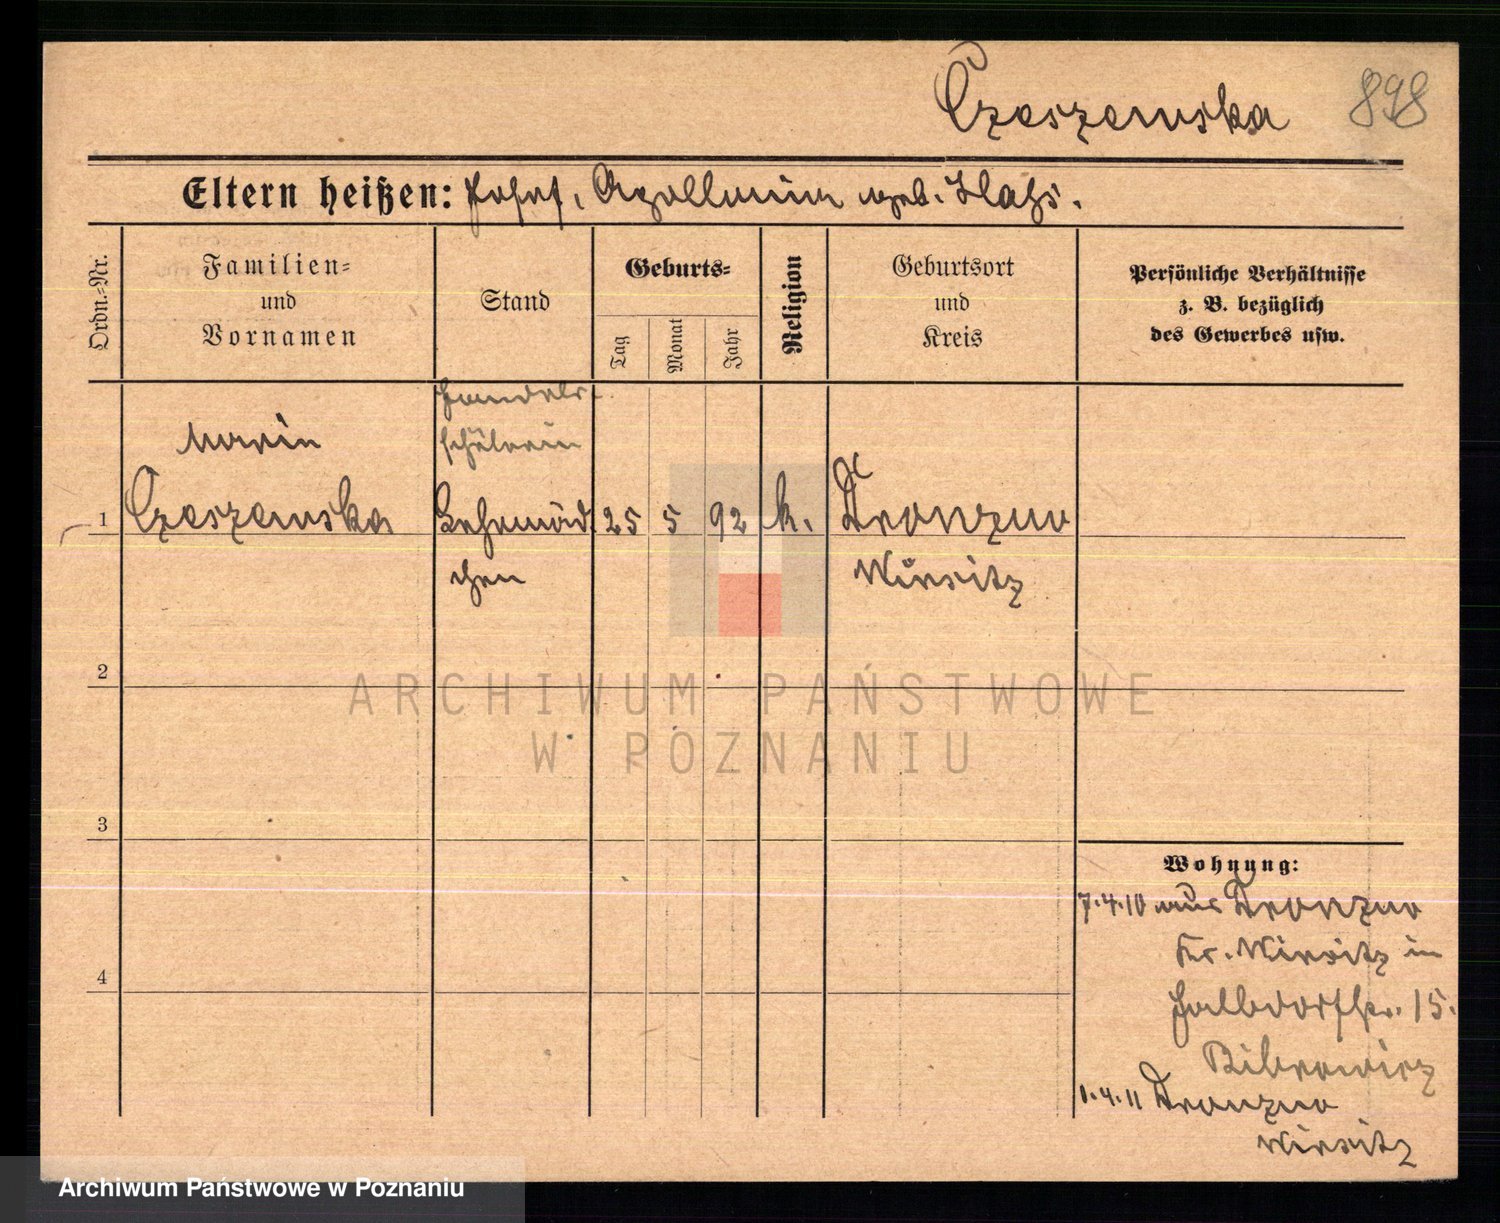 Czeszewska 898
Eltern heißen: Josef, Apollonia geb. Hahs.
Ordn.-Nr.
Familien-
und
Vornamen
Stand
Geburts-
Tag
Monat
Jahr
Religion
Geburtsort
und
Kreis
Persönliche Verhältnisse
z. B. bezüglich
des Gewerbes usw.
Handels-
schülerin
Maria
1 Czeszewska Lehrmäd- 25 5 92 k. Dronzno
chen Wirsitz
2
3
4
Wohnung:
7.4.10 aus Dronzno
Kr. Wirsitz in
Halbdorfstr. 15.
Bibrowicz
1.4.11 Dronzno
Wirsitz
ARCHIWUM PAŃSTWOWE
W POZNANIU
Archiwum Państwowe w Poznaniu